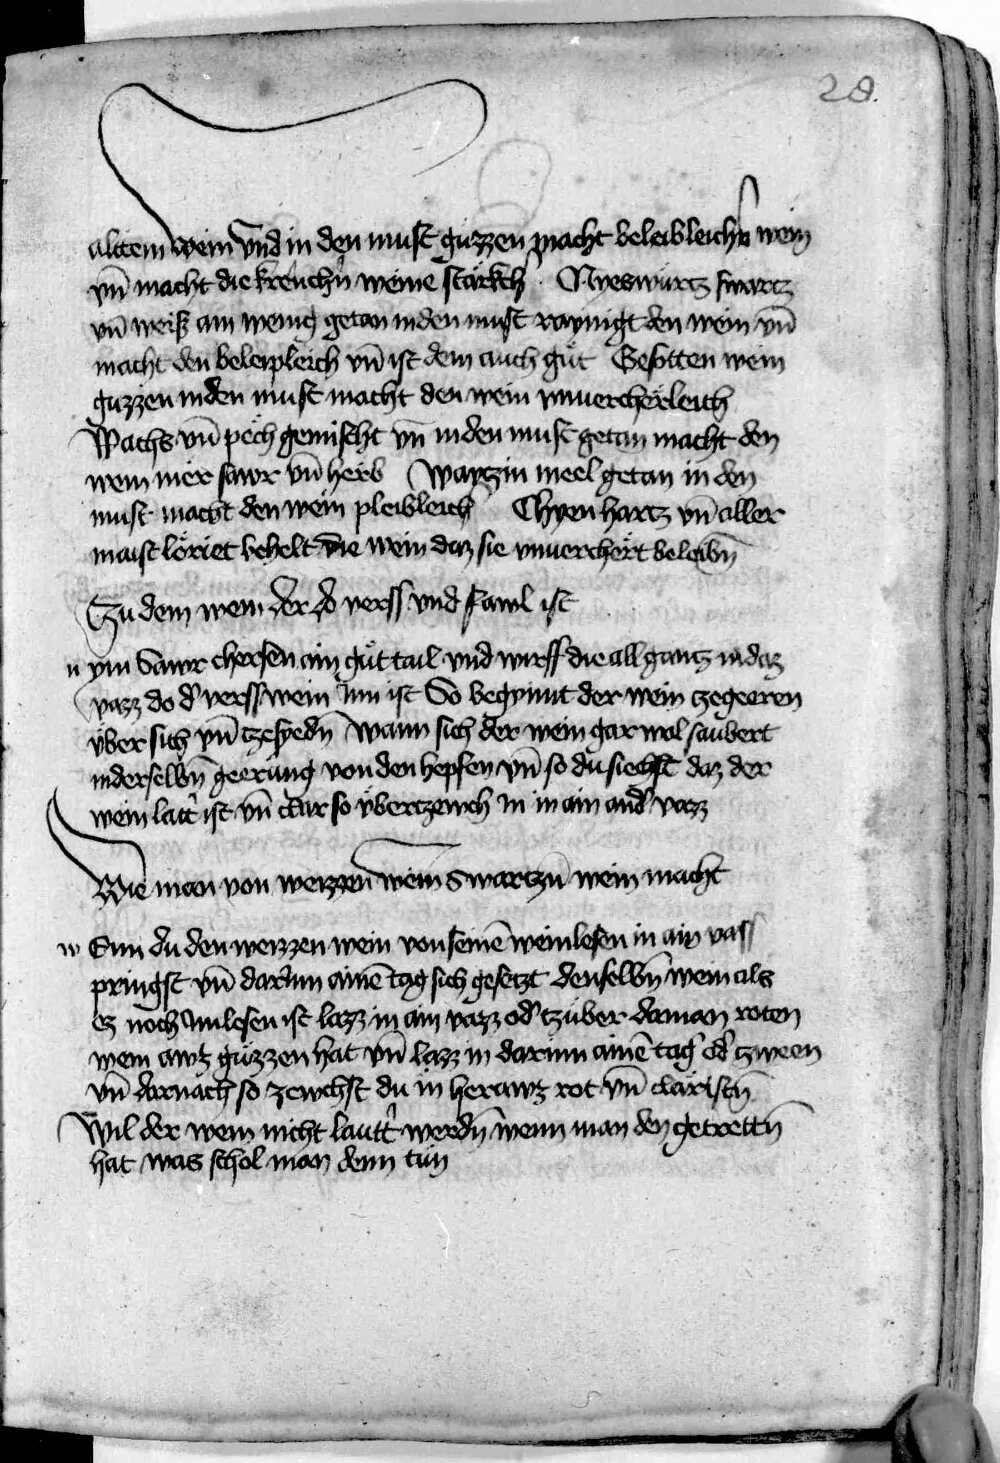 28.
alttem wein vnd in den must guzzen macht beleibleichn̄ wein
vn̄ macht die krenchn̄ weine starkch · Nyeswurtz swartz
vn̄ weis ain wenig getan in den must raynigt den wein vn̄
macht den beleipleich vn̄ ist dem auch gůt Gesotten wein
guzzen in den must macht den wein vnuercherleich
Wachs vn̄ pech gemischt vn̄ in den must getan macht den
wein mer sawr vn̄ herb Waytzin meel getan in den
must macht den wein pleibleich Chyen hartz vn̄ aller
maist loriet behelt die wein daz sie vnuerchert beleibn̄
Zu dem wein der do verss vnd fawl ist
n ym Sawr chersen ain gůt tail vnd wirff die all gantz in daz
vazz do d' verss wein inn ist So begynnt der wein tzegeeren
vber sich vn̄ tzesyedn̄ Wann sich der wein gar wol saubert
in derselbn̄ geerung von den hepfen vn̄ so du siechst daz der
wein latt' ist vn̄ clar so vbertzewch in in ain and' vazz
Wie man von weizzen wein Swartzn̄ wein macht
w Enn du den weizzen wein von seinē weinlesen in ain vass
pringst vn̄ darinn ainē tag sich gesetzt denselbn̄ wein als
ez noch inn lesen ist lazz in ain vazz od' tzuber do man roten
wein awz guzzen hat vn̄ lazz in darinn ainē tag od' tzween
vn̄ darnach so zewchst du in herawz rot vn̄ claristn̄
Wil der wein nicht lautt' werdn̄ wenn man den getrettn̄
hat was schol man denn tun